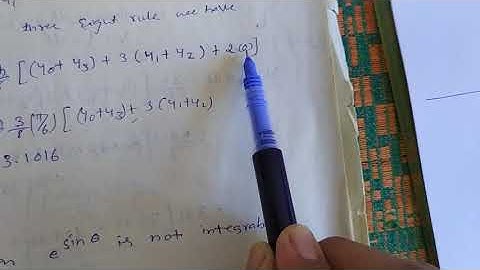 three Eight rule we have
[(y0 + y3) + 3 (y1 + y2) + 2(0)]
3/8 (π/6) [(y0+y3) + 3 (y1+y2)
3.1016
e^sinθ is not integrab